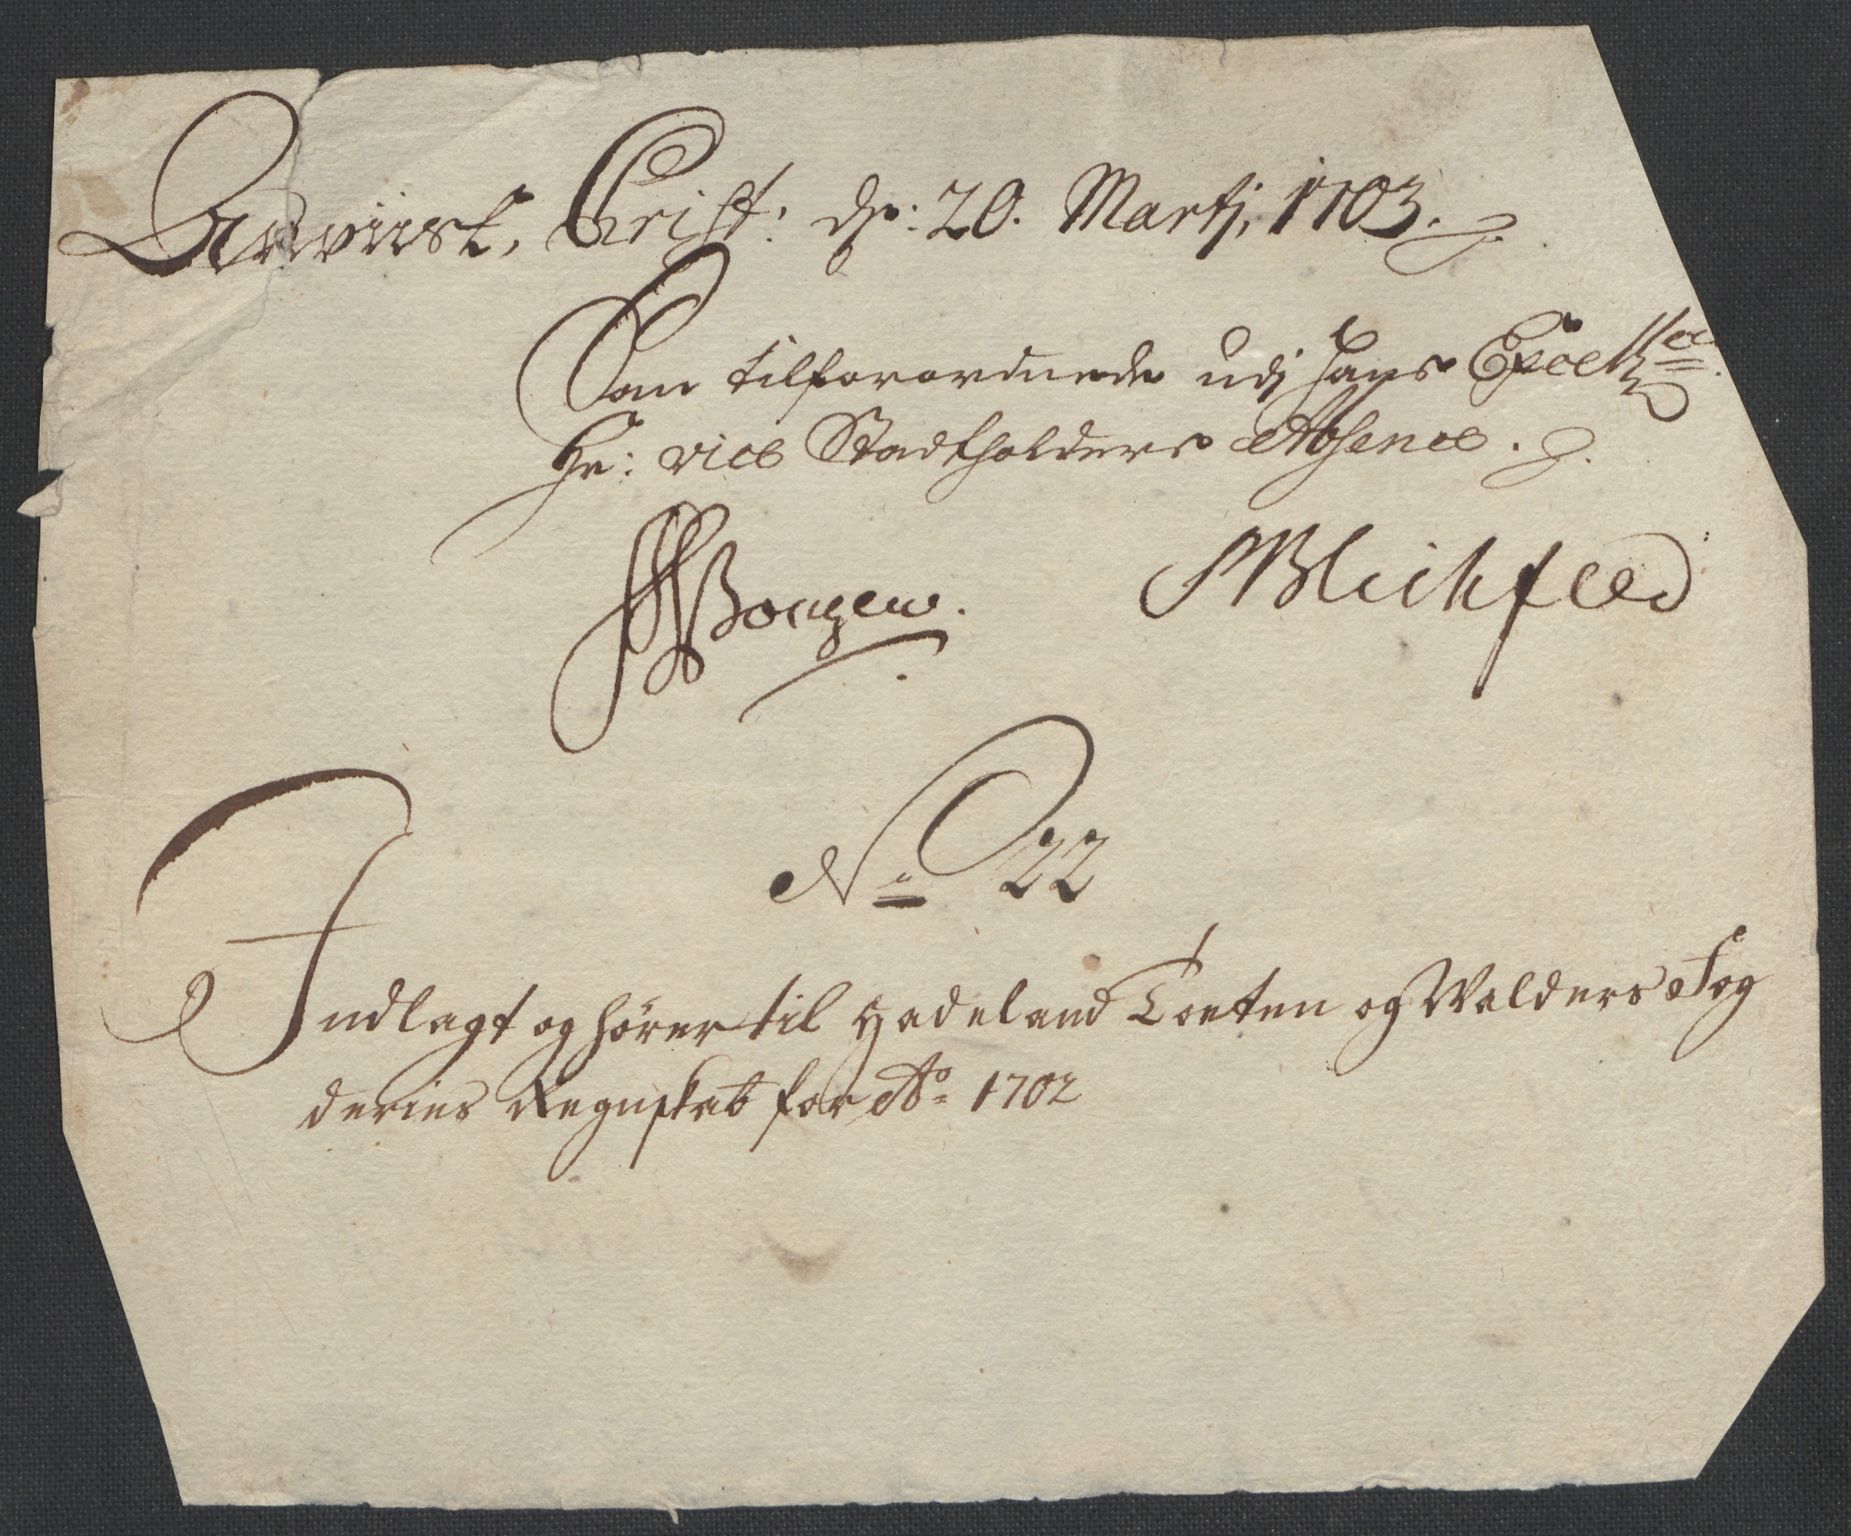 Anviist, Christ: dn: 20. Martj, 1703.
Som tilforordnede udj hans Excellcer
Hr: vice Stadtholders Absence.
Borgen. MBlichfeld
No 22
Indlagt og hører til Hadeland Toeten og Walders Fog
deries Regnskab for Ao 1702